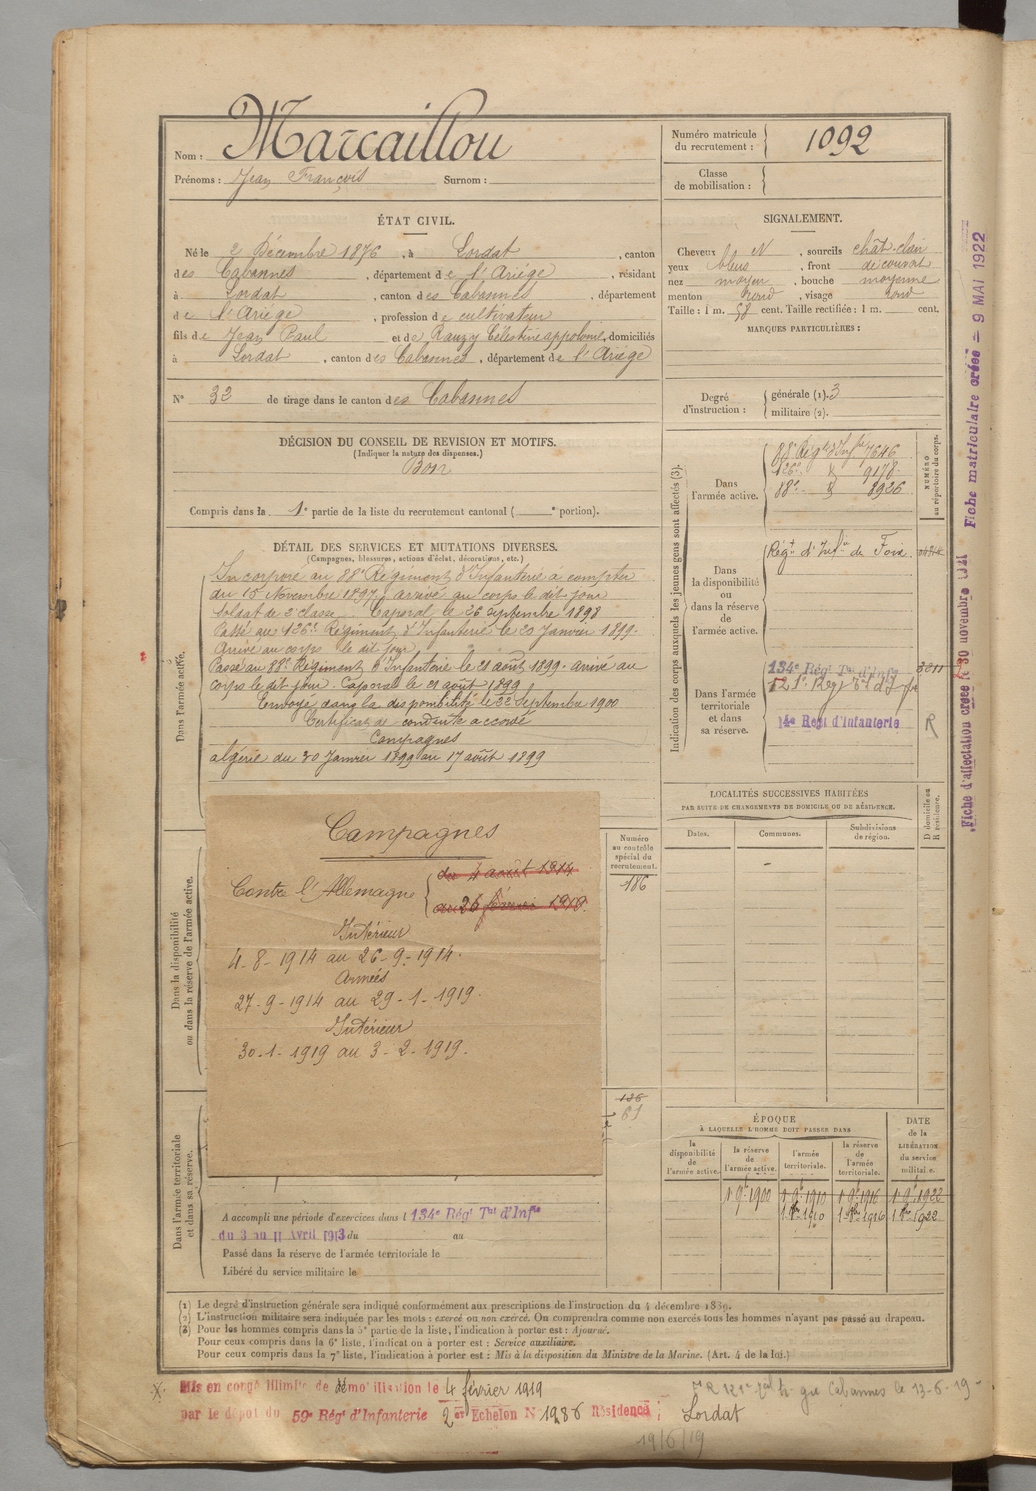 Nom : Marcaillou
Prénoms : Jean François Surnom :
Numéro matricule du recrutement : 1092
Classe de mobilisation :
ÉTAT CIVIL.
Né le 2 Décembre 1876, à Lordat, canton
des Cabannes, département de l'Ariège, résidant
à Lordat, canton des Cabannes, département
de l'Ariège, profession de cultivateur
fils de Jean Paul et de Rauzy Célestine appolonie, domiciliés
à Lordat, canton des Cabannes, département de l'Ariège
N° 32 de tirage dans le canton des Cabannes
SIGNALEMENT.
Cheveux N, sourcils chât-clair
yeux bleus, front découvert
nez moyen, bouche moyenne
menton rond, visage rond
Taille : 1 m. 58 cent. Taille rectifiée : 1 m. cent.
MARQUES PARTICULIÈRES :
Degré d'instruction : générale (1). 3
militaire (2).
DÉCISION DU CONSEIL DE REVISION ET MOTIFS.
(Indiquer la nature des dispenses.)
Bon
Compris dans la 1e partie de la liste du recrutement cantonal ( e portion).
DÉTAIL DES SERVICES ET MUTATIONS DIVERSES.
(Campagnes, blessures, actions d'éclat, décorations, etc.)
Dans l'armée active.
Incorporé au 88e Régiment d'Infanterie à compter
du 15 Novembre 1897, arrivé au corps le dit jour
soldat de 2e classe. Caporal le 26 septembre 1898
Passé au 126e Régiment d'Infanterie le 20 Janvier 1899.
Arrivé au corps le dit jour
Passé au 88e Régiment d'Infanterie le 21 août 1899. arrivé au
corps le dit jour. Caporal le 21 août 1899.
Envoyé dans la disponibilité le 22 Septembre 1900
Certificat de conduite accordé
Campagnes
algérie du 20 Janvier 1899 au 17 août 1899
Indication des corps auxquels les jeunes gens sont affectés (3).
NUMÉRO au répertoire du corps.
Dans l'armée active.
88e Régt d'Infie 7646
126e d 9178
88e d 8926
Dans la disponibilité ou dans la réserve de l'armée active.
Régt d'Infie de Foix
Dans l'armée territoriale et dans sa réserve.
134e Régt Tal d'Infie
14e Régt d'Infanterie R
LOCALITÉS SUCCESSIVES HABITÉES
PAR SUITE DE CHANGEMENTS DE DOMICILE OU DE RÉSIDENCE.
Dates. Communes. Subdivisions de région. D domicile ou R résidence.
Dans la disponibilité ou dans la réserve de l'armée active.
Numéro au contrôle spécial du recrutement.
186
Campagnes
Contre l'Allemagne
du 4 août 1914
au 26 février 1919.
Intérieur
4-8-1914 au 26-9-1914.
Armées
27-9-1914 au 29-1-1919.
Intérieur
30-1-1919 au 3-2-1919.
61
Dans l'armée territoriale et dans sa réserve.
A accompli une période d'exercices dans l 134e Régt Tal d'Infie
du 3 au 11 Avril 1913 du au
Passé dans la réserve de l'armée territoriale le
Libéré du service militaire le
ÉPOQUE
À LAQUELLE L'HOMME DOIT PASSER DANS
la disponibilité de l'armée active. la réserve de l'armée active. l'armée territoriale. la réserve de l'armée territoriale. DATE de la LIBÉRATION du service militaire.
1 9b 1900 1 9b 1910 1 9b 1916 1 9b 1922
1 8bre 1910 1 8bre 1916 1 8bre 1922
(1) Le degré d'instruction générale sera indiqué conformément aux prescriptions de l'instruction du 4 décembre 1889.
(2) L'instruction militaire sera indiquée par les mots : exercé ou non exercé. On comprendra comme non exercés tous les hommes n'ayant pas passé au drapeau.
(3) Pour les hommes compris dans la 5e partie de la liste, l'indication à porter est : Ajourné.
Pour ceux compris dans la 6e liste, l'indication à porter est : Service auxiliaire.
Pour ceux compris dans la 7e liste, l'indication à porter est : Mis à la disposition du Ministre de la Marine. (Art. 4 de la loi.)
Mis en congé illimité de démobilisation le 4 février 1919
par le dépôt du 59e Régt d'Infanterie 2er Echelon N° 1286 Résidence : Lordat
Cabannes le 13-6-19
19/6/19
Fiche d'affectation créée le 30 novembre 1921
Fiche matriculaire créée = 9 MAI 1922